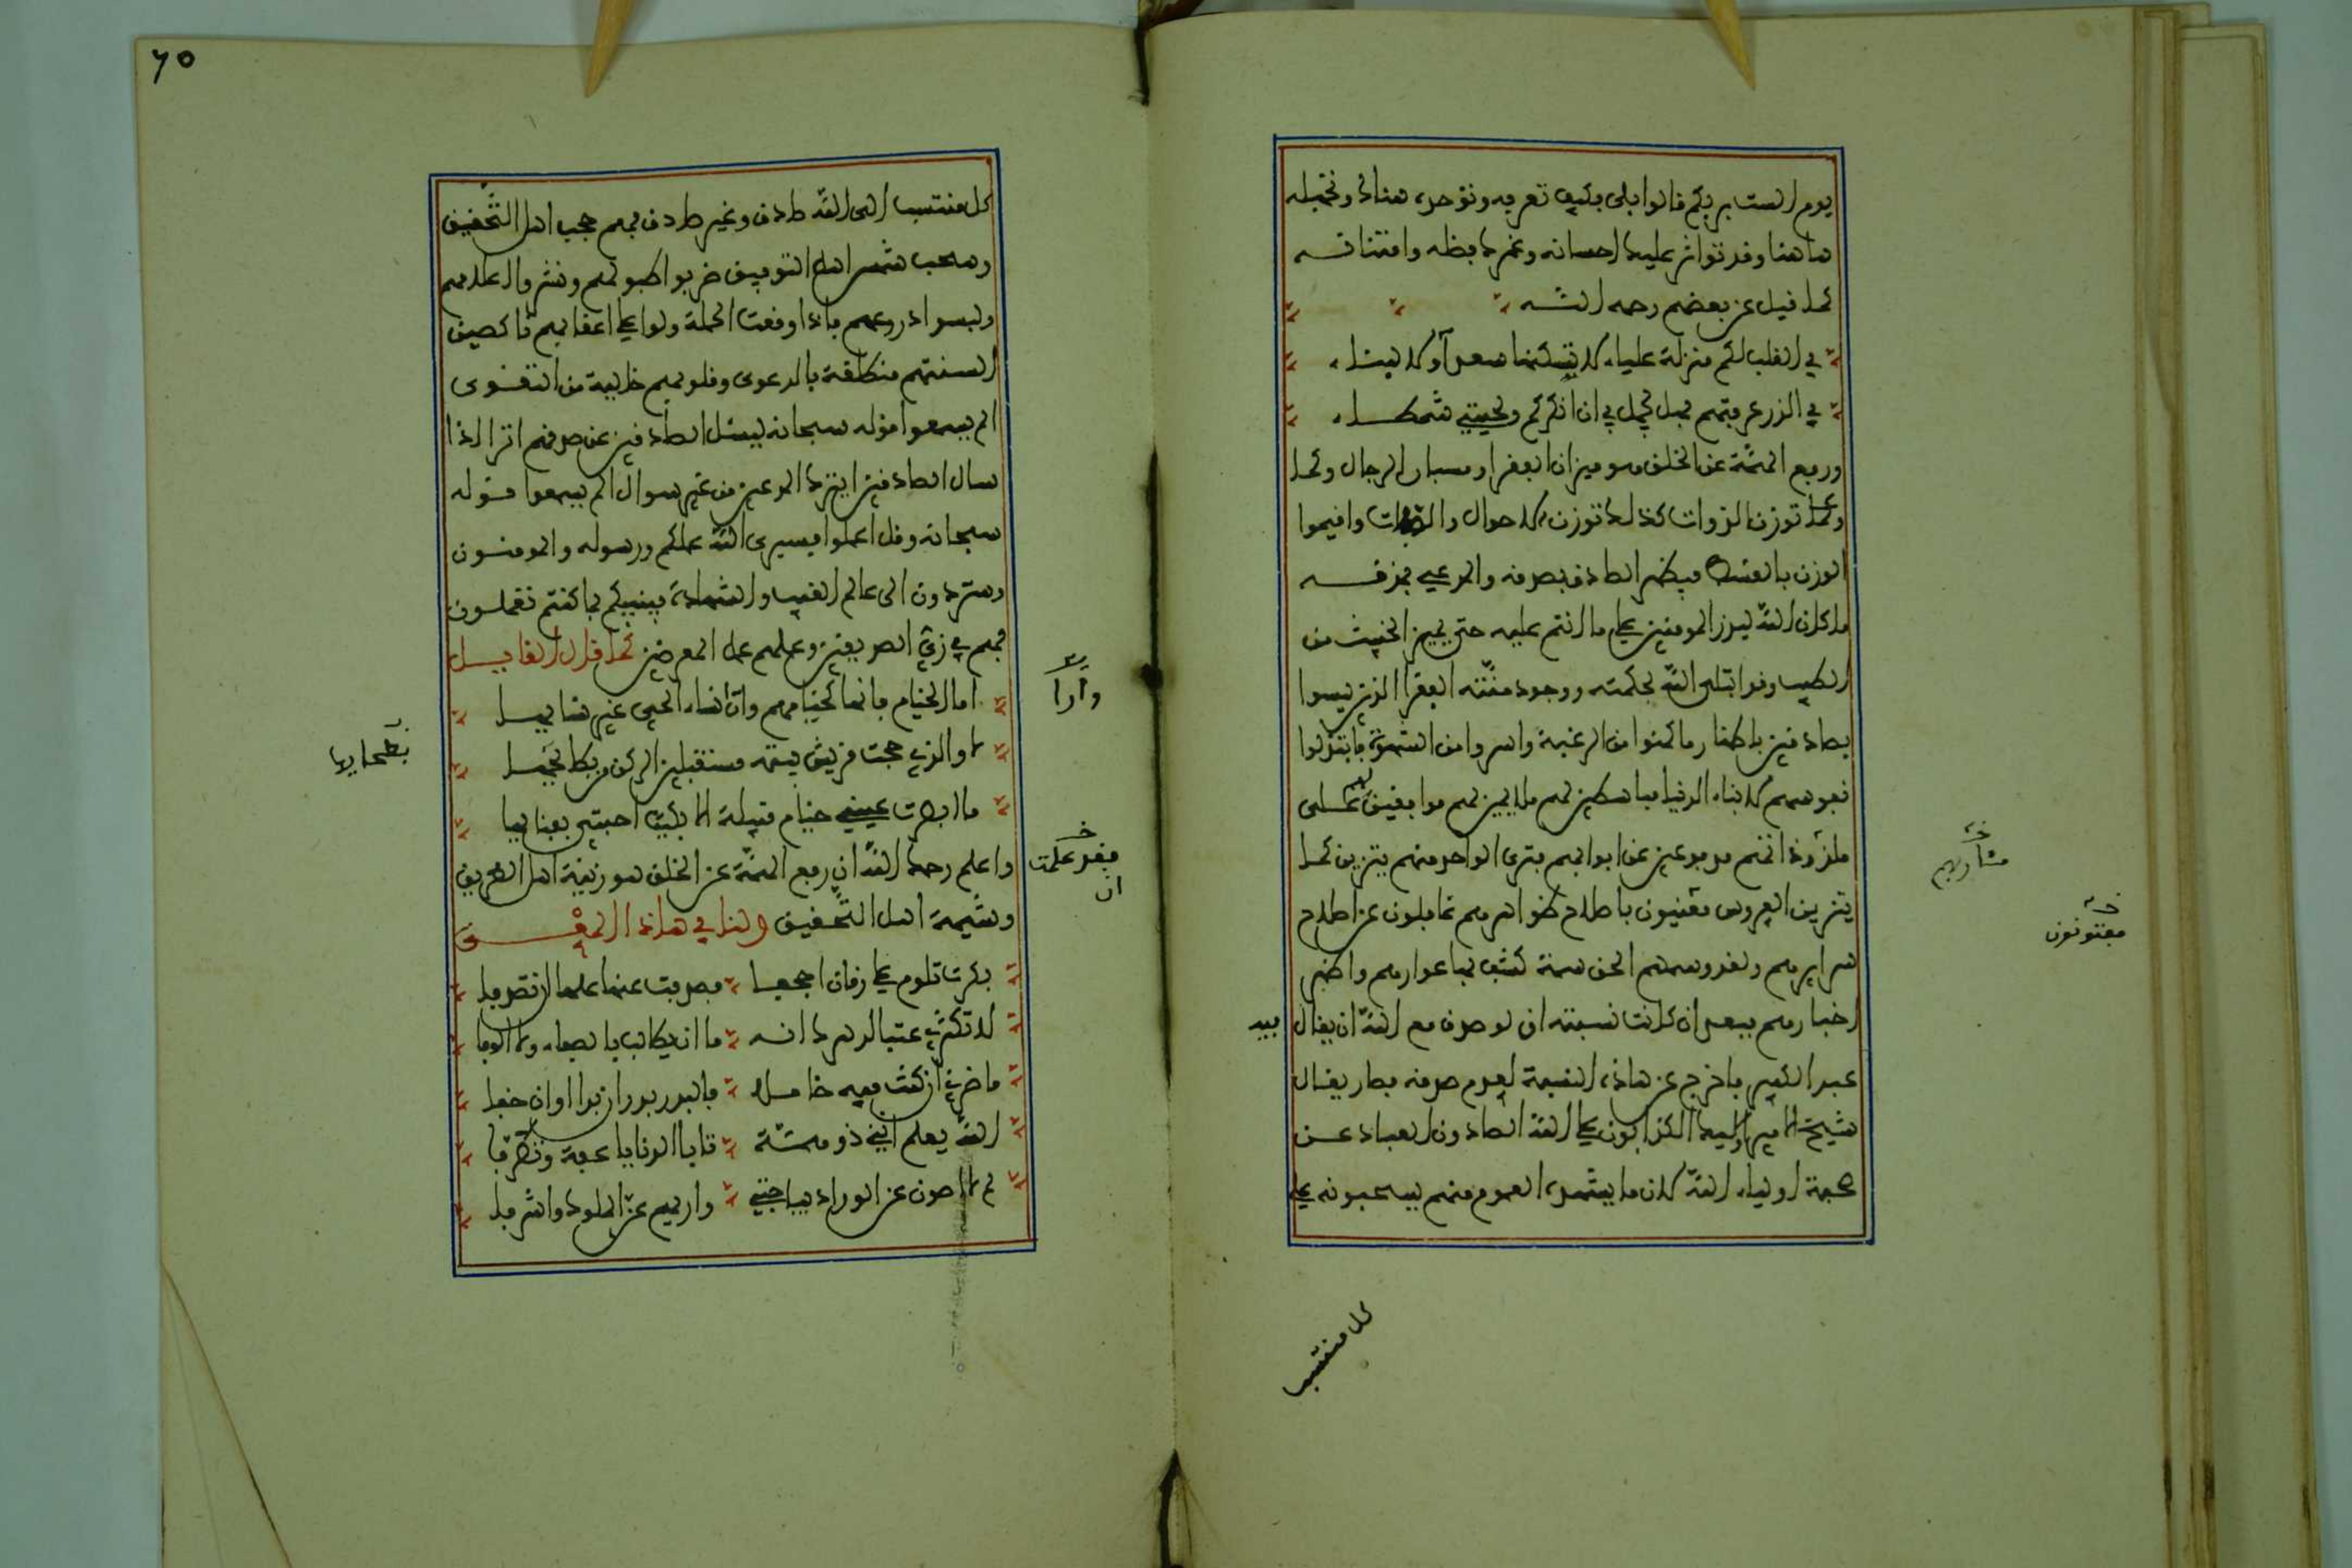 يوم الست بربكم قالوا بلى بكيف تعرفه وتوحده هنالك وتجهله
هاهنا وقد تواتر عليك احسانه وغمرك فضله وامتنانه
كما قيل عن بعضهم رحمه الله
في القلب لكم منزلة علياء لا تسكنها سعدا ولا لبناء
في الذر عرفتهم فهل يجمل بي ان انكركم ولحيتي شمطاء
ورفع الهمة عن الخلق هو ميزان الفقرا ومسبار الرجال وكما
وكما توزن الذوات كذلك توزن الاحوال والصفات واقيموا
الوزن بالقسط فيظهر الصادق بصدقه والمدعي بمذقه
ما كان الله ليذر المومنين على ما انتم عليه حتى يميز الخبيث من
الطيب وقد ابتلى الله بحكمته ووجود منته الفقرا الذين ليسوا
بصادقين باظهار ما كمنوا من الرغبة واسروا من الشهوة فابتذلوا
نفوسهم لابناء الدنيا مباسطين لهم ملايمين لهم موافقين لهم على
ملذوذاتهم مدفوعين عن ابوابهم فترى الواحد منهم يتزين كما
يتزين العروس معنيون باصلاح ظواهرهم غافلون عن اصلاح
سرايرهم ولقد وسمهم الحق سمة كشف بها عوارهم واظهر
اخبارهم فبعد ان كانت نسبته ان لو صدق مع الله ان يقال
فيه
عبد الكبير فاخرج عن هاذه النسبة لعدم صدقه فصار يقال
شيخ الامير اوليك الكذابون على الله الصادون العباد عن
صحبة اولياء الله لان ما يشهده العموم منهم يسحبونه على
مشاربهم
مفتونون
كل منتسب
٦٥
كل منتسب الى الله صادق وغير صادق فهم حجب اهل التحقيق
وسحب شمس اهل التوفيق ضربوا طبولهم ونشروا اعلامهم
ولبسوا دروعهم فاذا وقعت الحملة ولوا على اعقابهم ناكصين
السنتهم منطلقة بالدعوى وقلوبهم خالية من التقوى
الم يسمعوا قوله سبحانه ليسئل الصادقين عن صدقهم اترا اذا
سال الصادقين ايترك المدعين من غير سوال الم يسمعوا قوله
سبحانه وقل اعملوا فسيرى الله عملكم ورسوله والمومنون
وستردون الى عالم الغيب والشهادة فينبيكم بما كنتم تعملون
فهم في زي الصديقين وعملهم عمل المعرضين كما قال القايل
اما الخيام فانها كخيامهم وان نساء الحي غير نسايها
وارا
لا والذي حجت قريش بيته مستقبلين الركن من بطحايها
بطحايها
ما ابصرت عيني خيام قبيلة الا بكيت احبتي بفنايها
واعلم رحمك الله ان رفع الهمة عن الخلق هو زينة اهل الطريق
فقد علمت
ان
وشيمة اهل التحقيق ولنا في هاذا المعنى
بكرت تلوم على زمان اجحفا فصدفت عنها علها ان تصدفا
لا تكثري عتبا لدهرك انه ما ان يطالب بالصفاء ولا الوفا
ما ضرني ان كنت فيه خاملا فالبدر بدر ان بدا او ان خفا
الله يعلم انني ذو همة تابا الدنايا عفة وتظرفا
لم لا اصون عن الورى ديباجتي واريهم عز الملوك واشرفا